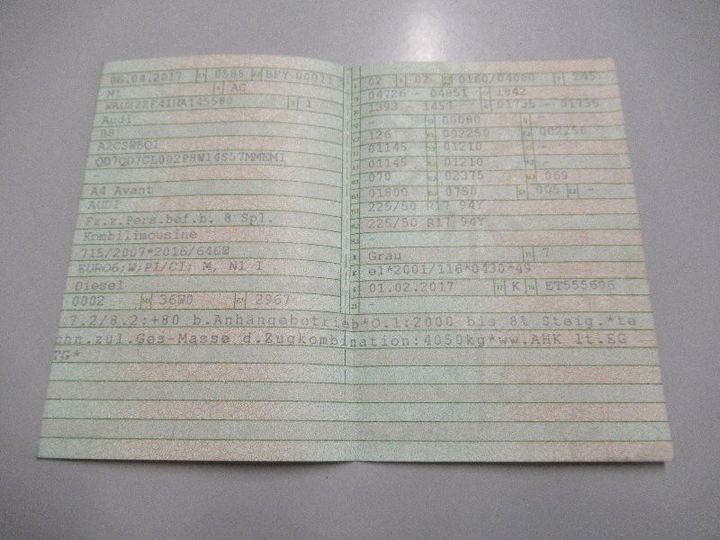 06.04.2017 0588 BFY 00011
M1 AC
WAUZZZF41HA145580 1
Audi
B8
A2CSWBQ1
QD7QD7CL002P8W14S57MMEM1
-
A4 Avant
AUDI
Fz.z.Pers.bef.b. 8 Spl.
Kombilimousine
715/2007*2016/646W
EURO6;W;PI/CI; M, N1 I
Diesel
0002 36W0 2967
02 02 0160/04000 245
04726 - 04851 1842
1393 - 1457 01735 - 01735
- 00080 -
126 002250 002250
01145 01210 -
01145 01210 -
070 02375 069
01800 0750 005 -
225/50 R17 94Y
225/50 R17 94Y
-
Grau 7
e1*2001/116*0430*49
01.02.2017 K ET555606
-
7.2/8.2:+80 b.Anhängebetrieb*O.1:2000 bis 8% Steig.*te
chn.zul.Ges-Masse d.Zugkombination:4050kg*ww.AHK lt.EG
TG*